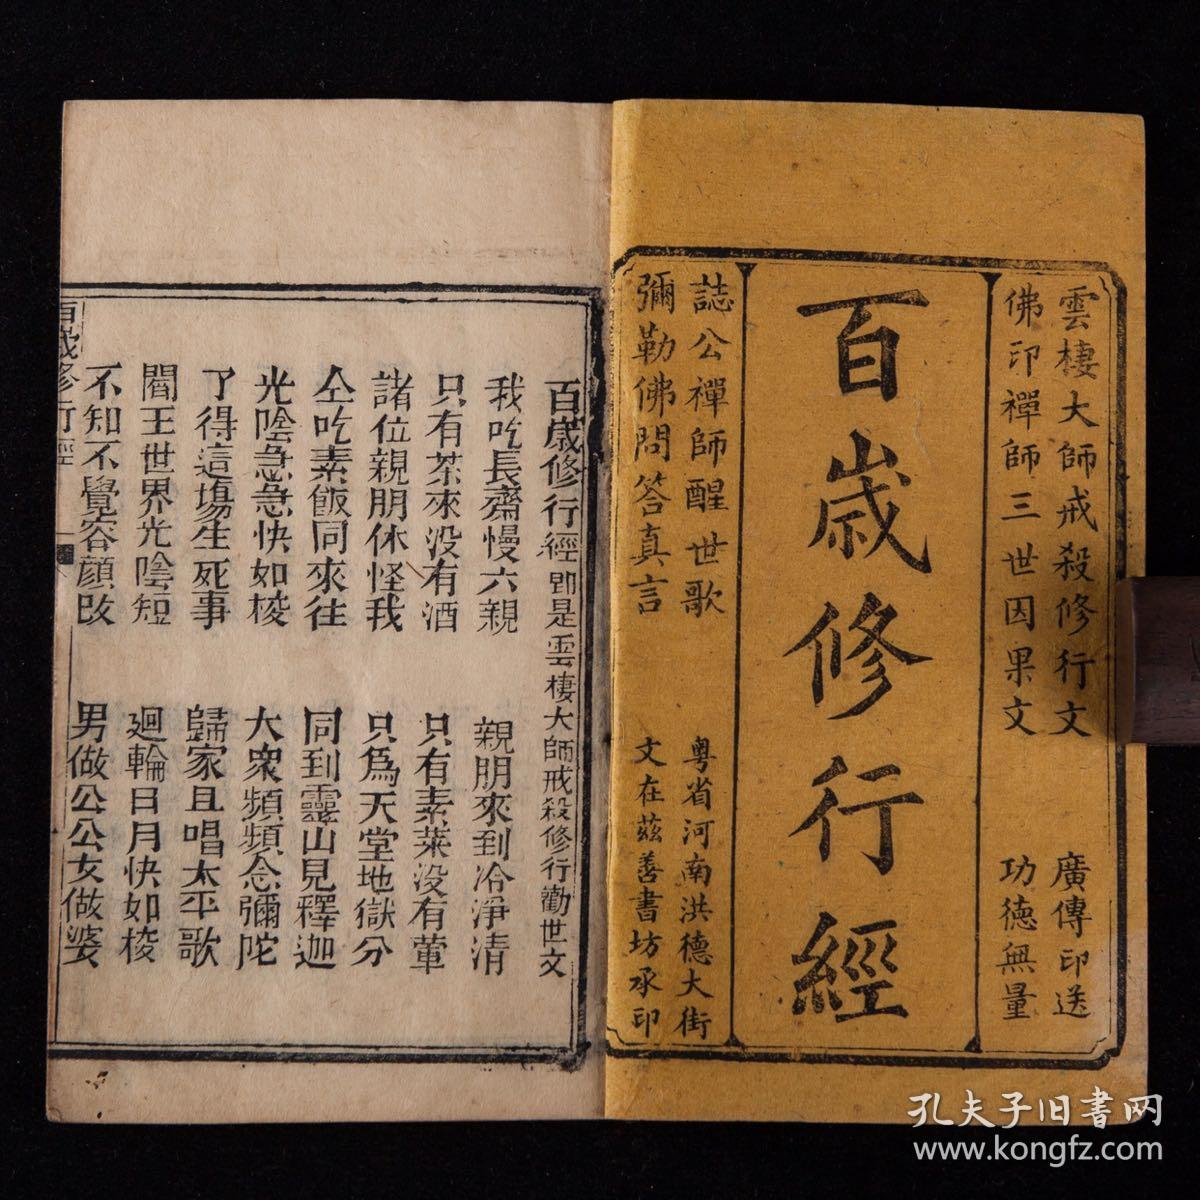 雲棲大師戒殺修行文 廣傳印送
佛印禪師三世因果文 功德無量
百歲修行經
誌公禪師醒世歌 粵省河南洪德大街
彌勒佛問答真言 文在茲善書坊承印
百歲修行經 即是雲棲大師戒殺修行勸世文
我吃長齋慢六親 親朋來到冷淨清
只有茶來没有酒 只有素菜没有葷
諸位親朋休怪我 只為天堂地獄分
仝吃素飯同來往 同到靈山見釋迦
光陰急急快如梭 大衆頻頻念彌陀
了得這塲生死事 歸家且唱太平歌
閻王世界光陰短 廻輪日月快如梭
不知不覺容顔改 男做公公女做婆
百歲修行經 一
孔夫子旧書网
www.kongfz.com